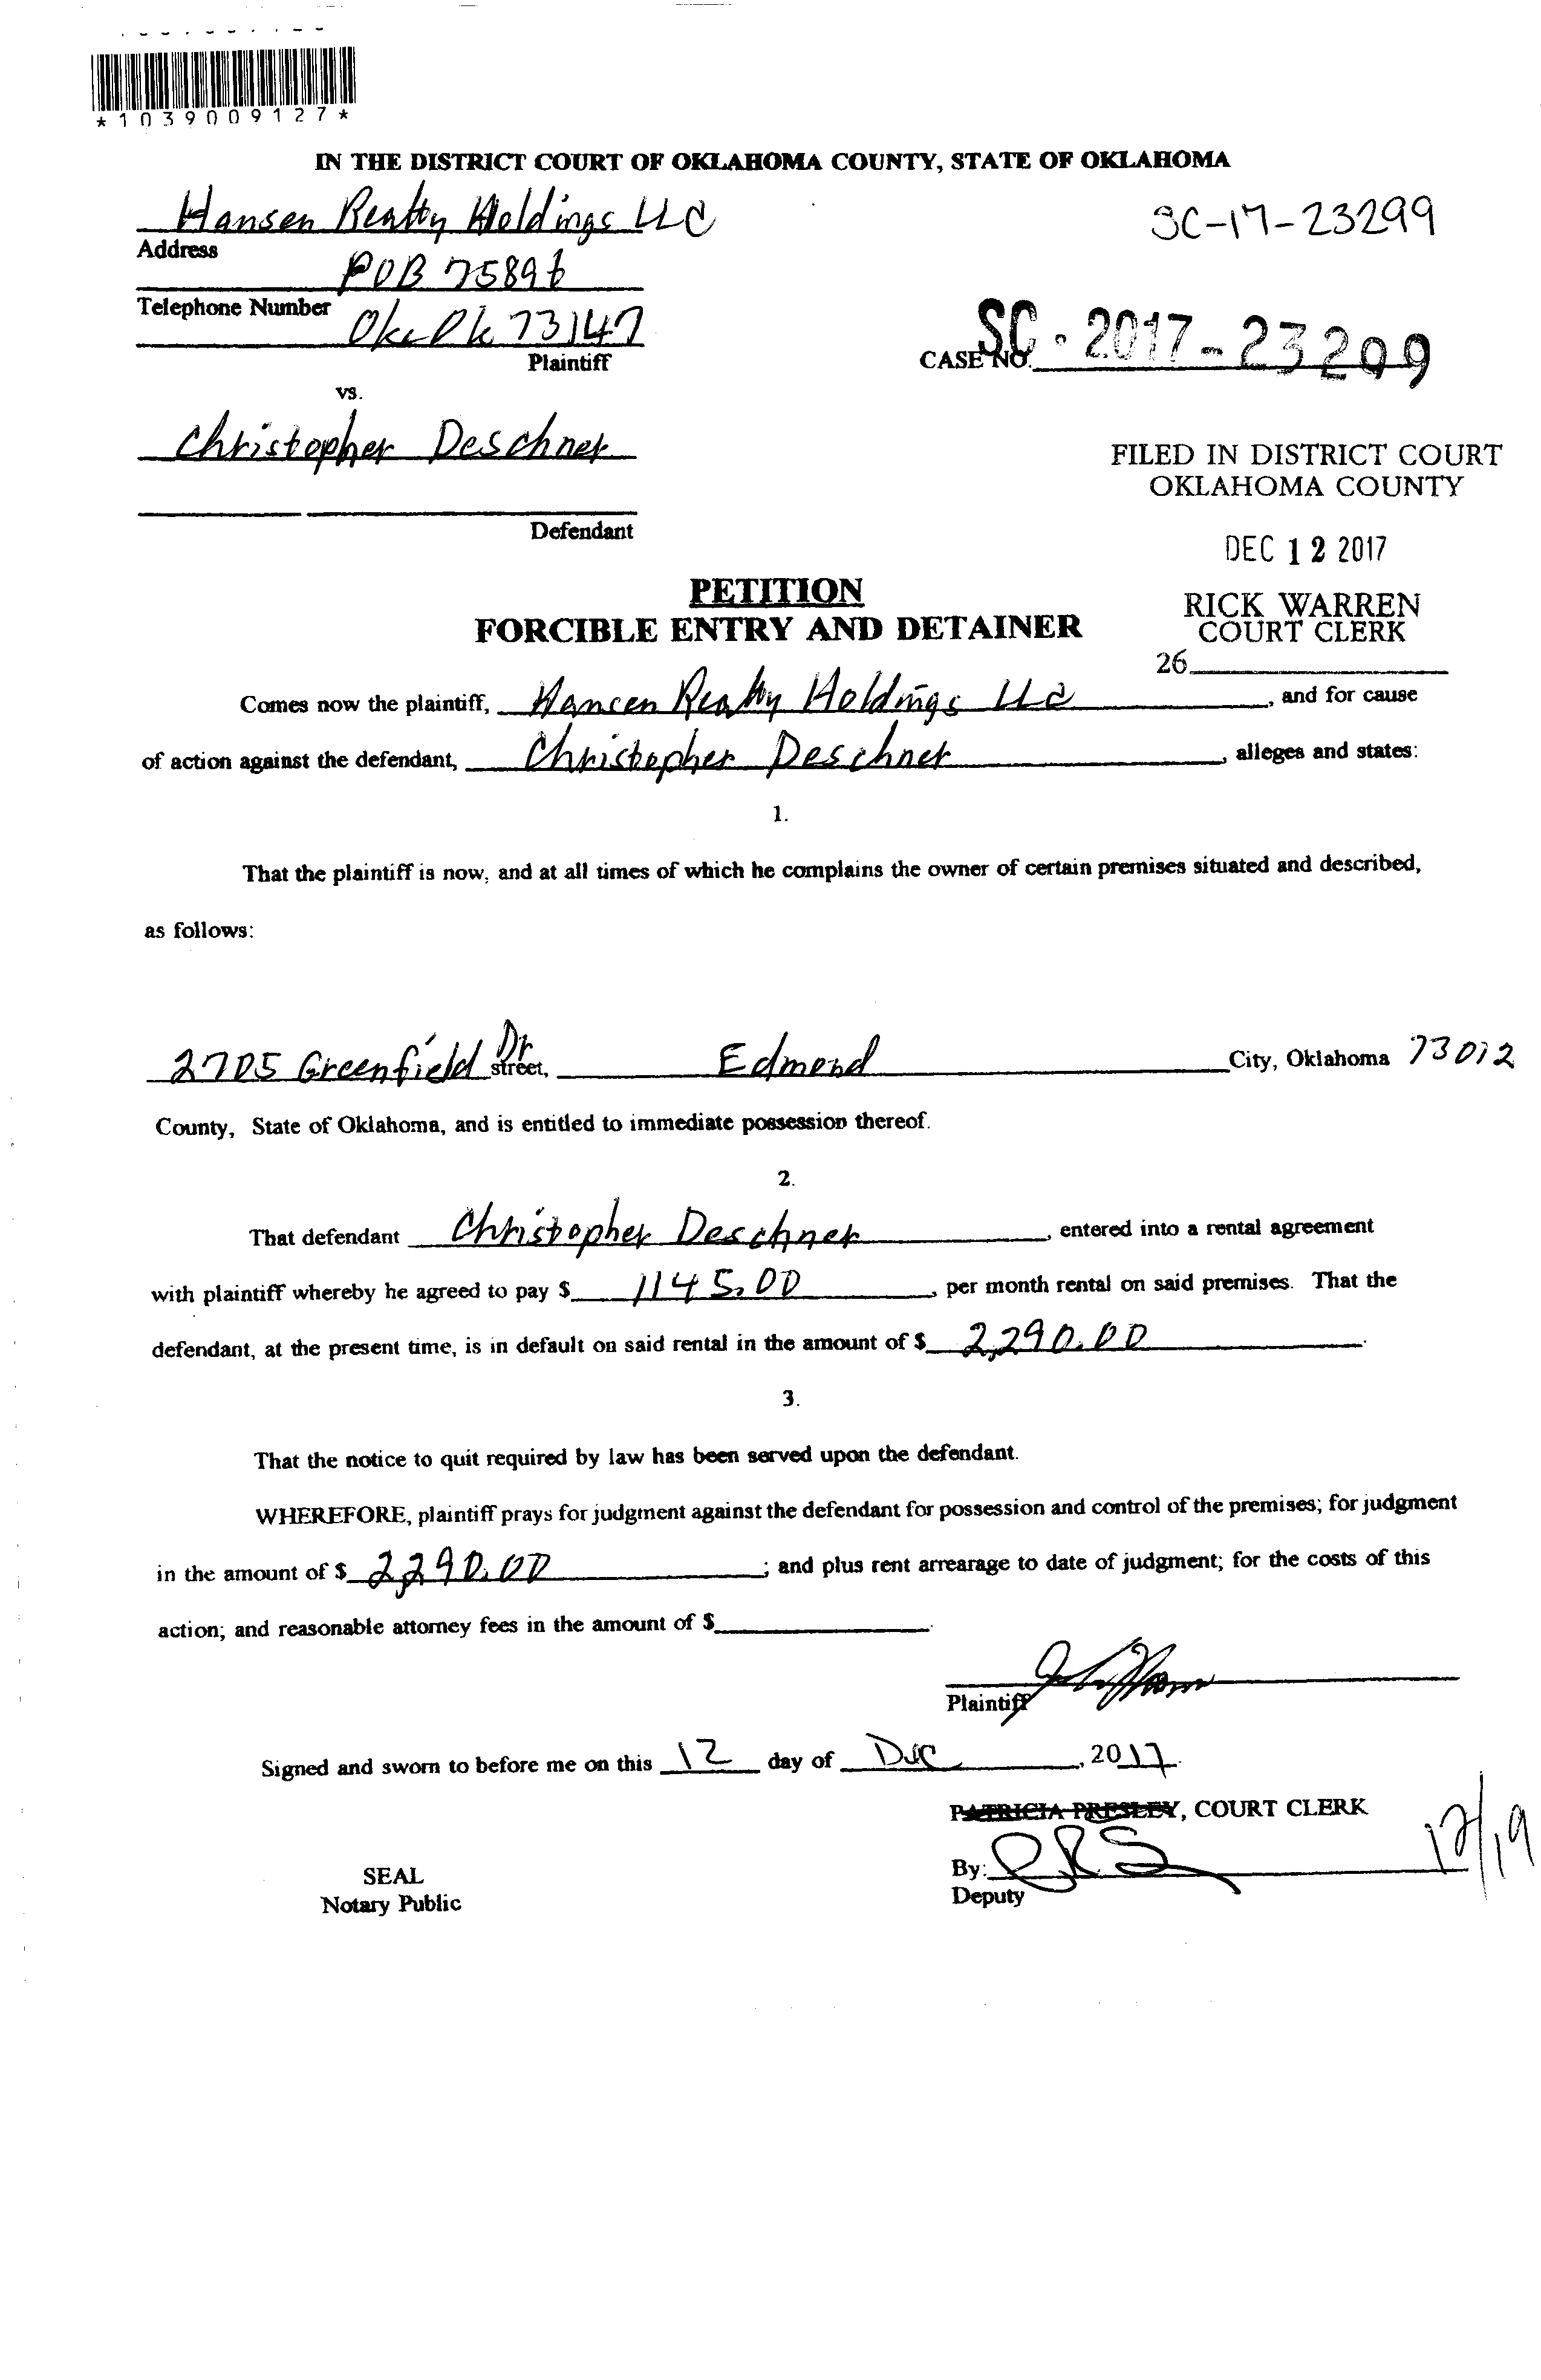 *1039009127*
IN THE DISTRICT COURT OF OKLAHOMA COUNTY, STATE OF OKLAHOMA
Hansen Realty Holdings LLC
SC-17-23299
Address
POB 75896
Telephone Number
Okc Ok 73147
Plaintiff
CASE NO. SC-2017-23299
vs.
Christopher Deschner
Defendant
FILED IN DISTRICT COURT
OKLAHOMA COUNTY
DEC 12 2017
RICK WARREN
COURT CLERK
26
PETITION
FORCIBLE ENTRY AND DETAINER
Comes now the plaintiff, Hansen Realty Holdings LLC, and for cause
of action against the defendant, Christopher Deschner, alleges and states:
1.
That the plaintiff is now, and at all times of which he complains the owner of certain premises situated and described,
as follows:
2705 Greenfield Dr street, Edmond City, Oklahoma 73012
County, State of Oklahoma, and is entitled to immediate possession thereof.
2.
That defendant Christopher Deschner, entered into a rental agreement
with plaintiff whereby he agreed to pay $ 1145.00, per month rental on said premises. That the
defendant, at the present time, is in default on said rental in the amount of $ 2,290.00.
3.
That the notice to quit required by law has been served upon the defendant.
WHEREFORE, plaintiff prays for judgment against the defendant for possession and control of the premises; for judgment
in the amount of $ 2,290.00; and plus rent arrearage to date of judgment; for the costs of this
action; and reasonable attorney fees in the amount of $
Plaintiff
Signed and sworn to before me on this 12 day of Dec, 2017.
PATRICIA PRESLEY, COURT CLERK
12/19
By:
Deputy
SEAL
Notary Public